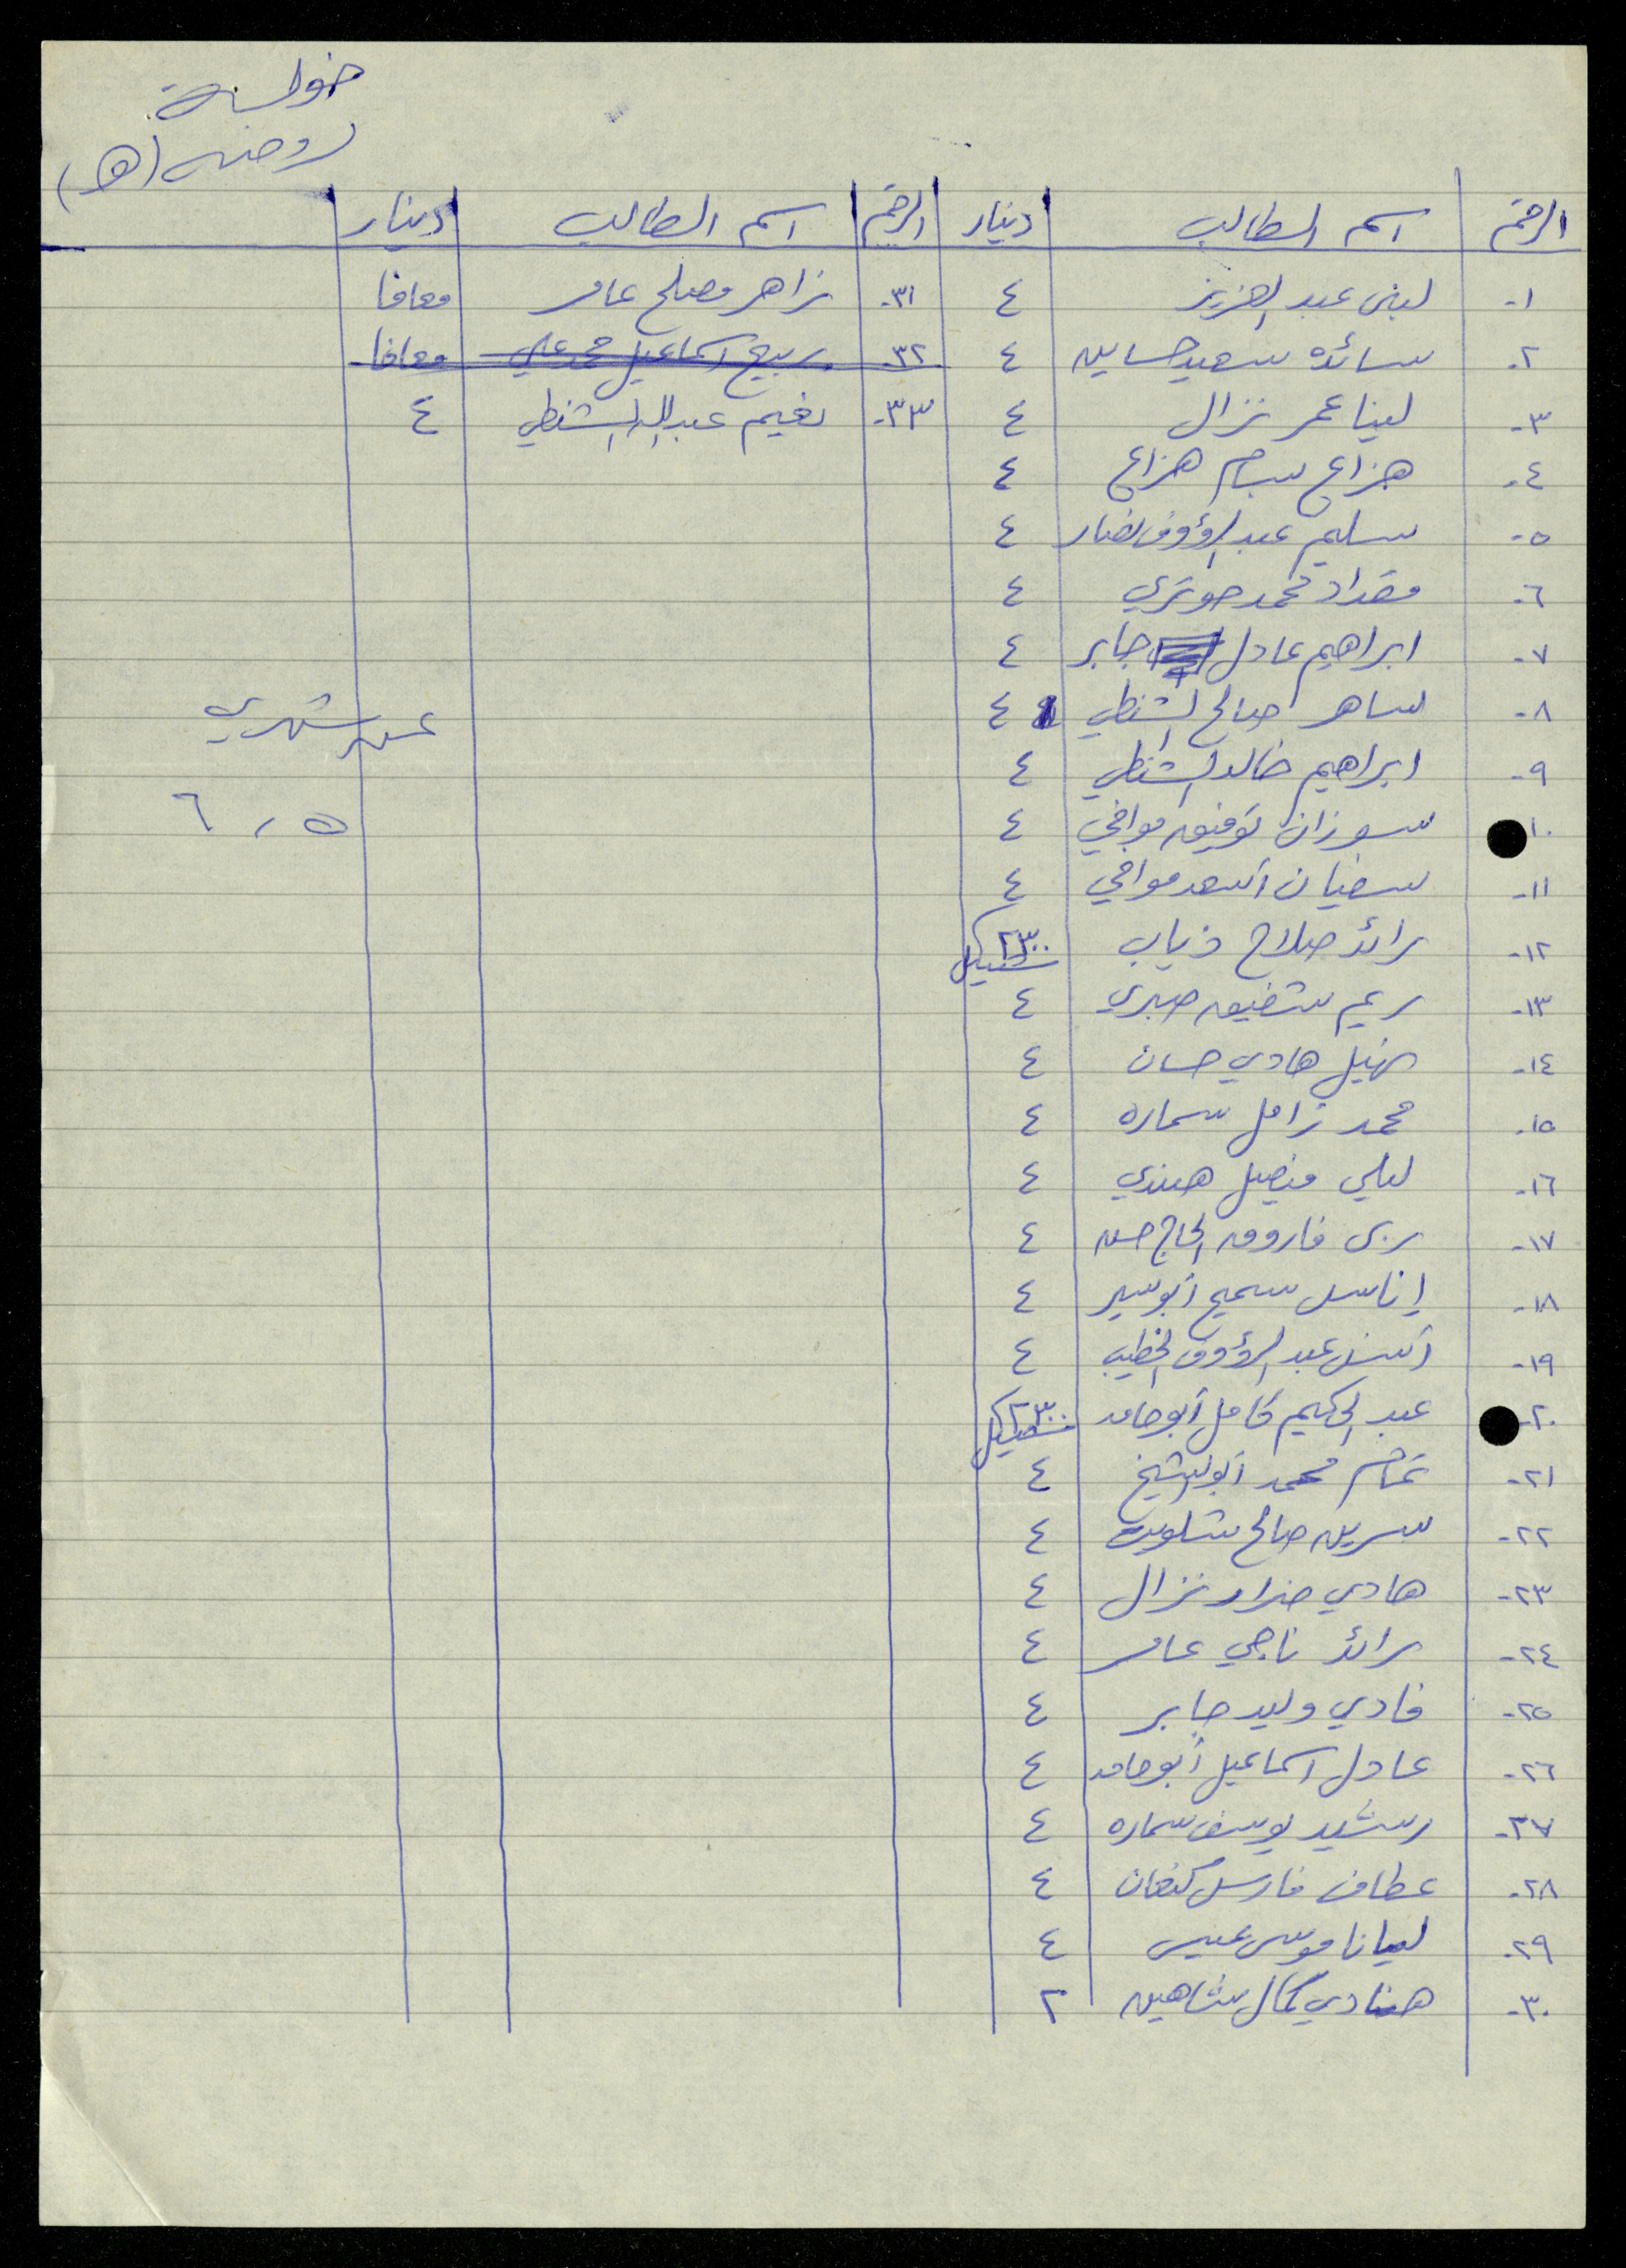 خولة
روضه (هـ)
الرقم اسم الطالب دينار الرقم اسم الطالب دينار
١- لبنى عبد العزيز ٤
٢- سائده سعيد حساين ٤
٣- لينا عمر نزال ٤
٤- هزاع بسام هزاع ٤
٥- سليم عبد الرؤوف نصار ٤
٦- مقداد محمد حوتري ٤
٧- ابراهيم عادل جابر ٤
٨- ساهر صالح الشنطي ٤
٩- ابراهيم خالد الشنطي ٤
١٠ سوزان توفيق موافي ٤
١١- سفيان أسعد موافي ٤
١٢- رائد صلاح ذياب ٢٣٠٠ شيكل
١٣- ريم شفيق صبري ٤
١٤- نهيل هادي حسان ٤
١٥- محمد زامل سماره ٤
١٦- ليلى فيصل هندي ٤
١٧- ربى فاروق الحاج حسن ٤
١٨- إناس سميح أبو سير ٤
١٩- أنس عبد الرؤوف الخطيب ٤
٢٠- عبد الحكيم كامل أبو حامد ٢٣٠٠ شيكل
٢١- تمام محمد أبو الشيخ ٤
٢٢- سرين صالح شلويت ٤
٢٣- هادي ضرار نزال ٤
٢٤- رائد ناجي عامر ٤
٢٥- فادي وليد جابر ٤
٢٦- عادل اسماعيل أبو حامد ٤
٢٧- رشيد يوسف سماره ٤
٢٨- عطاف فارس كنعان ٤
٢٩- ليانا موسى عيسى ٤
٣٠- هنادي كمال شاهين ٢
٣١- زاهر مصلح عامر معافا
٣٢- ربيع اسماعيل محمد علي معافا
٣٣- نعيم عبد الله الشنطي ٤
عن شهري
٥ ، ٦